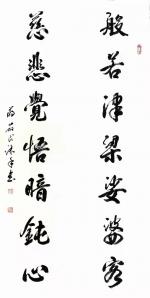 般若津梁娑婆客
慈悲覺悟暗鈍心